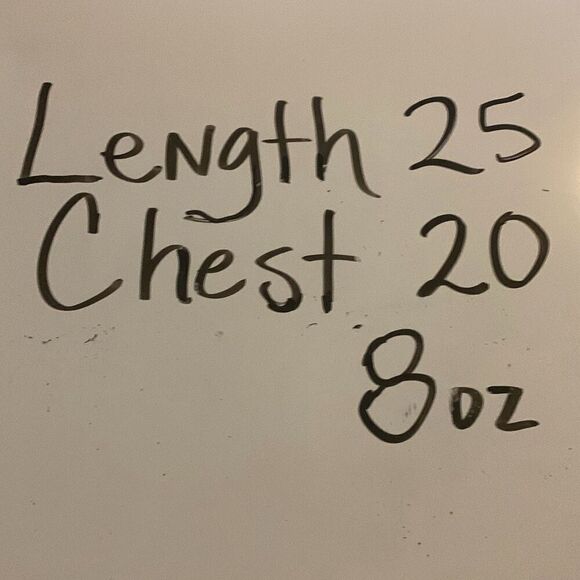 Length 25
Chest 20
8oz